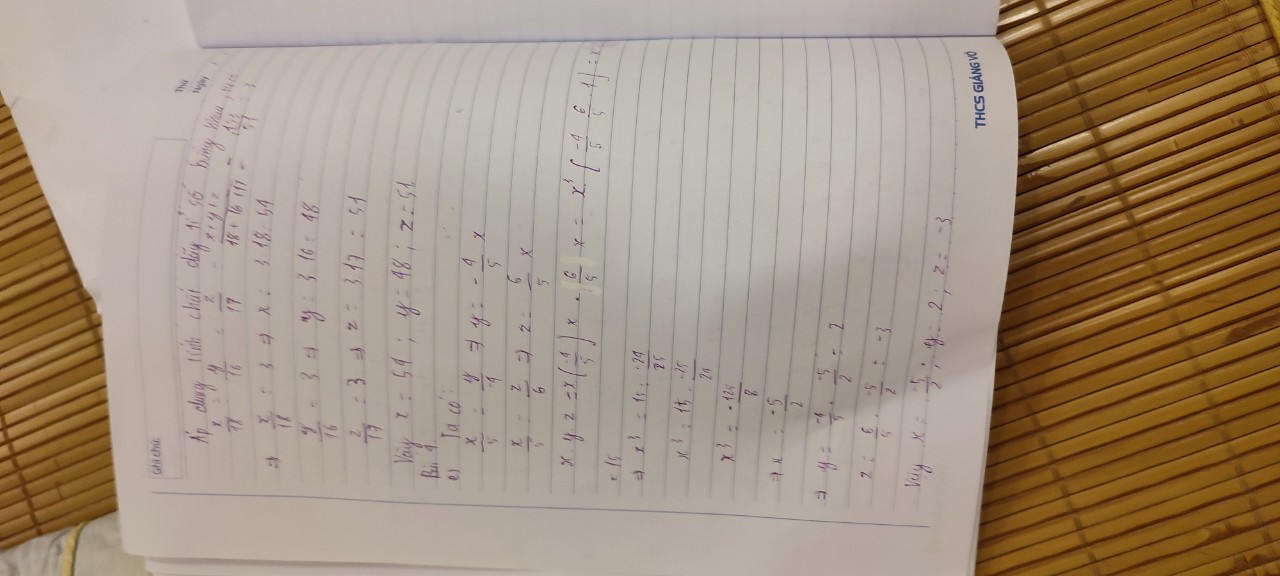 Ghi chú:
Thứ
Ngày
Áp dụng tính chất dãy tỉ số bằng nhau, ta có
x/18 = y/16 = z/17 = x+y+z/18+16+17 = 153/51 = 3
⇒ x/18 = 3 ⇒ x = 3.18 = 54
y/16 = 3 ⇒ y = 3.16 = 48
z/17 = 3 ⇒ z = 3.17 = 51
Vậy x = 54 ; y = 48 ; z = 51
Bài 4
e) Ta có:
x/5 = y/-4 ⇒ y = -4/5 x
x/5 = z/6 ⇒ z = 6/5 x
x.y.z = x.(-4/5)x.(6/5)x = x³.(-4/5.6/5.1) =
= 15
⇒ x³ = 15 : -24/25
x³ = 15 . -25/24
x³ = -125/8
⇒ x = -5/2
⇒ y = -4/5 . -5/2 = 2
z = 6/5 . -5/2 = -3
Vậy x = -5/2 ; y = 2 ; z = -3
THCS GIẢNG VÕ